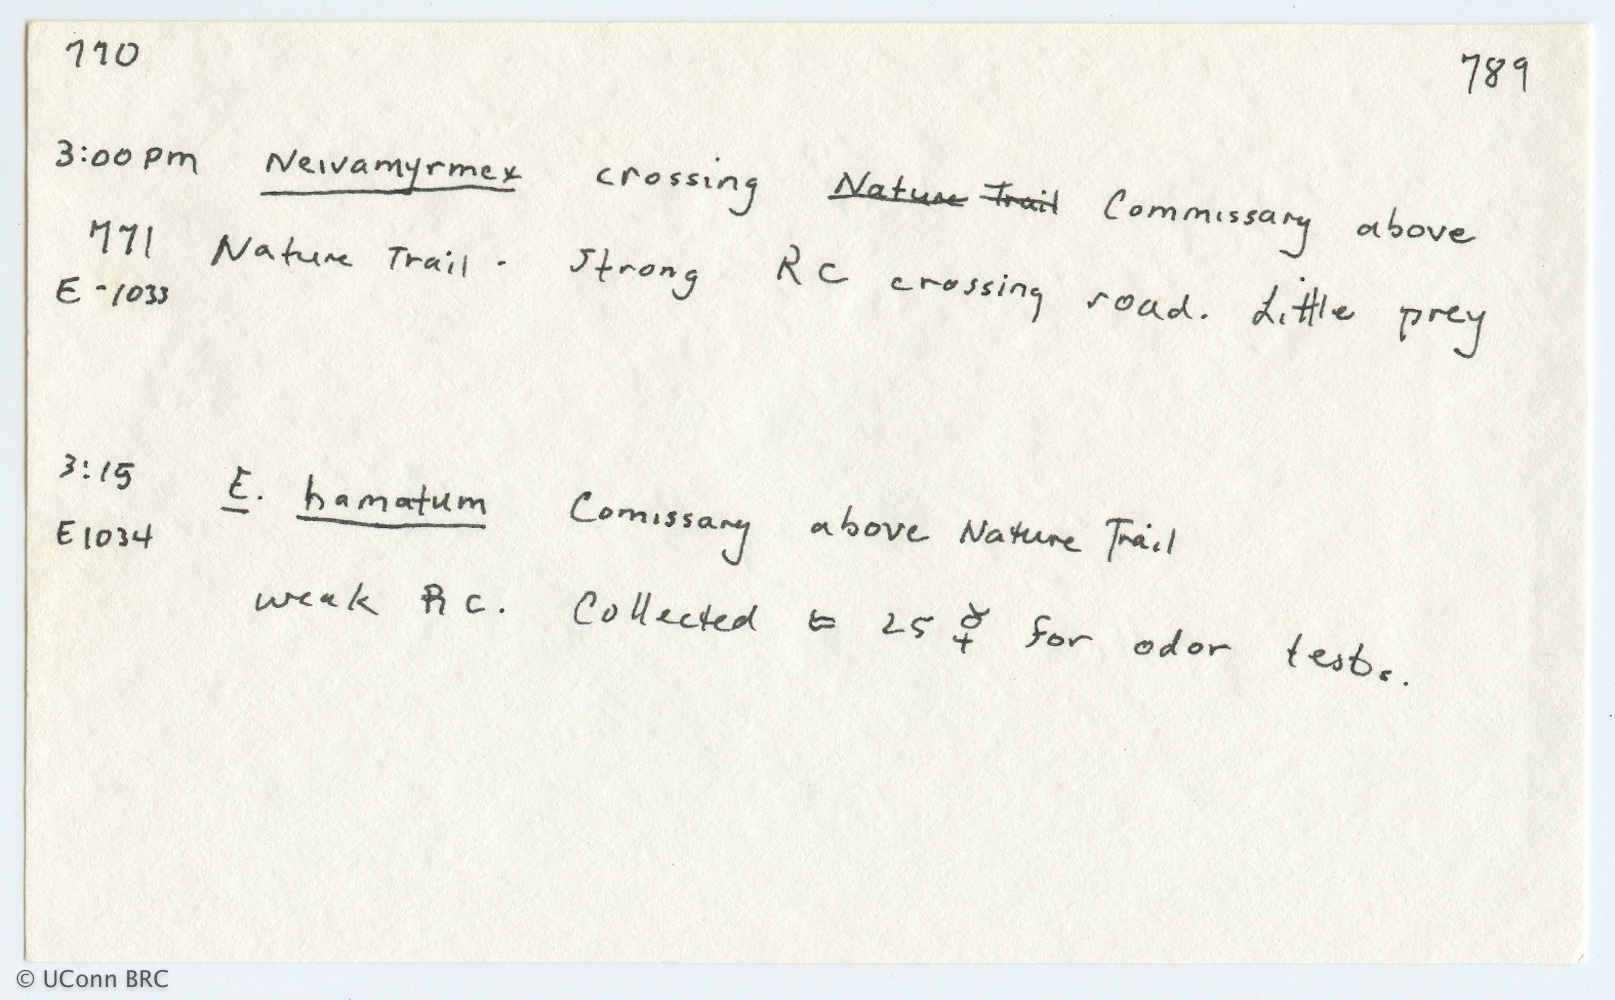 770 789
3:00 pm Neivamyrmex crossing Nature Trail Commissary above
771 Nature Trail. Strong RC crossing road. Little prey
E-1033
3:15 E. hamatum Comissary above Nature Trail
E1034
weak RC. Collected ≈ 25 ☿ for odor tests.
© UConn BRC